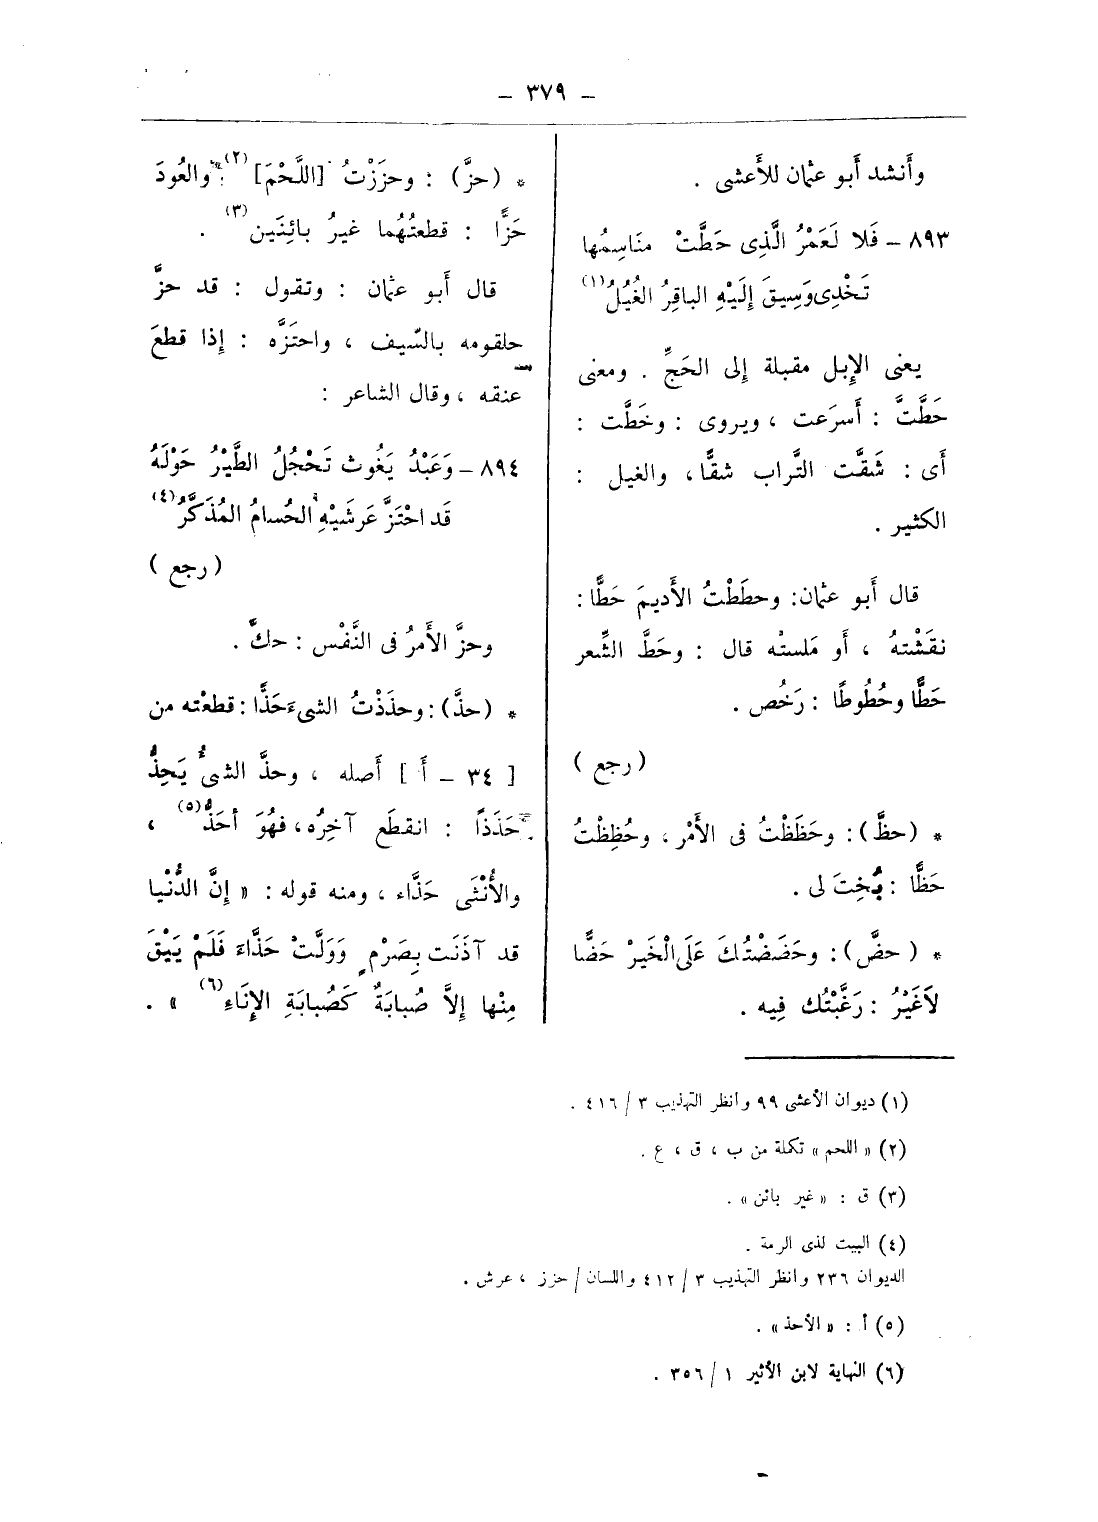 – ٣٧٩ –
وأَنشد أَبو عثمان للأَعشى .
٨٩٣ – فَلا لَعَمْرُ الَّذِى حَطَّتْ مَنَاسِمُها
تَخْدِى وَسِيقَ إِلَيْهِ الباقِرُ الغُيُلُ (١)
يعنى الإِبل مقبلة إلى الحَجِّ . ومعنى
حَطَّتَّ : أَسرَعت ، ويروى : وخَطَّت :
أَى : شَقَّت التَّراب شقًّا ، والغيل :
الكثير .
قال أَبو عثمان : وحطَطْتُ الأَديمَ حَطًّا :
نقَشْتهُ ، أَو مَلستْه قال : وحَطَّ الشِّعر
حَطًّا وحُطُوطًا : رَخُص .
( رجع )
* ( حظَّ ) : وحَظَظْتُ فى الأَمْر ، وحُظِظْتُ
حَظًّا : بُخِتَ لى .
* ( حضَّ ) : وحَضَضْتُكَ عَلَى الْخَيرْ حَضًّا
لاَغَيْرُ : رَغَّبْتُك فِيه .
* ( حزَّ ) : وحزَزْتُ [ اللَّحْمَ ] (٢) والعُودَ
حَزًّا : قطعتُهُما غيرُ بائِنَين (٣) .
قال أَبو عثمان : وتقول : قد حزَّ
حلقومه بالسّيف ، واحتَزَّه : إذا قطعَ
عنقه ، وقال الشاعر :
٨٩٤ – وَعَبْدُ يَغُوث تَحْجُلُ الطَّيْرُ حَوْلَهُ
قَد احْتَزَّ عَرشَيْهِ الحُسامُ المُذَكَّرُ (٤)
( رجع )
وحزَّ الأَمرُ فى النَّفْس : حكَّ .
* ( حذَّ ) : وحذَذْتُ الشىءَ حَذًّا : قطعْته من
[ ٣٤ – أَ ] أَصله ، وحذَّ الشىُّ يَحِذُّ
حَذَذاً : انقطَع آخِرُه ، فهُوَ أحَذُّ (٥) ،
والأُنْثَى حَذَّاء ، ومنه قوله : « إِنَّ الدُّنْيا
قد آذَنَت بِصَرْمٍ وَوَلَّتْ حَذَّاءَ فَلَمْ يَبْقَ
مِنْها إِلاَّ صُبابَةٌ كَصُبابَةِ الإِنَاءِ (٦) » .
(١) ديوان الأعشى ٩٩ وانظر التهذيب ٣ / ٤١٦ .
(٢) « اللحم » تكملة من ب ، ق ، ع .
(٣) ق : « غير بائن » .
(٤) البيت لذى الرمة .
الديوان ٢٣٦ وانظر التهذيب ٣ / ٤١٢ واللسان / حزز ، عرش .
(٥) أ : « الأحذ » .
(٦) النهاية لابن الأثير ١ / ٣٥٦ .